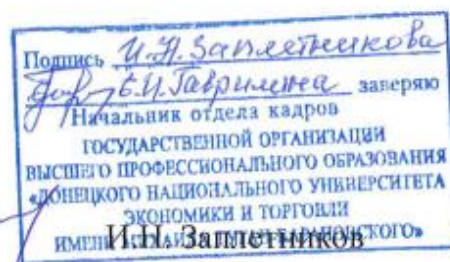 Подпись И.Н. Заплетникова
Е.И. Гаврилина заверяю
Начальник отдела кадров
ГОСУДАРСТВЕННОЙ ОРГАНИЗАЦИИ
ВЫСШЕГО ПРОФЕССИОНАЛЬНОГО ОБРАЗОВАНИЯ
«ДОНЕЦКОГО НАЦИОНАЛЬНОГО УНИВЕРСИТЕТА
ЭКОНОМИКИ И ТОРГОВЛИ
ИМЕНИ МИХАИЛА ТУГАН-БАРАНОВСКОГО»
И.Н. Заплетников